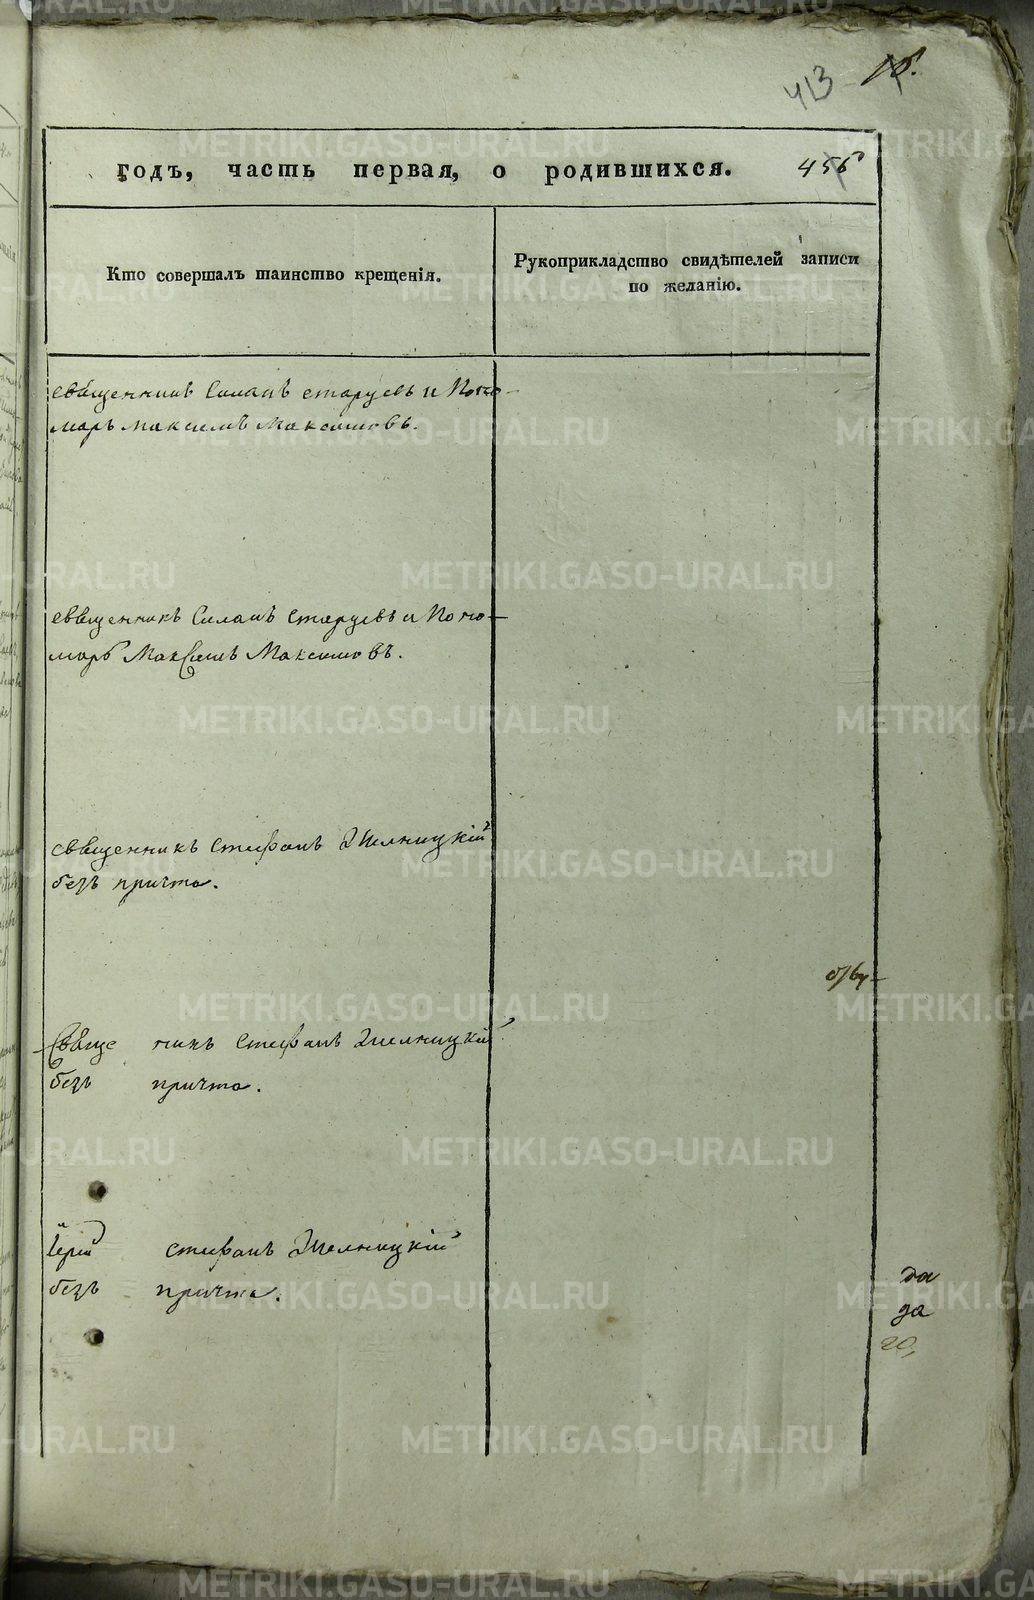 413
годъ, часть первая, о родившихся.
456
Кто совершалъ таинство крещенія.
Рукоприкладство свидѣтелей записи
по желанію.
священникъ Силанъ старцевъ и Поно-
марь Максимъ Максимовъ.
священникъ Силанъ старцевъ и Поно-
марь Максимъ Максимовъ.
священникъ стефанъ
безъ причта.
Священникъ стефанъ
безъ причта.
Іерей стефанъ
безъ причта.
да
да
METRIKI.GASO-URAL.RU